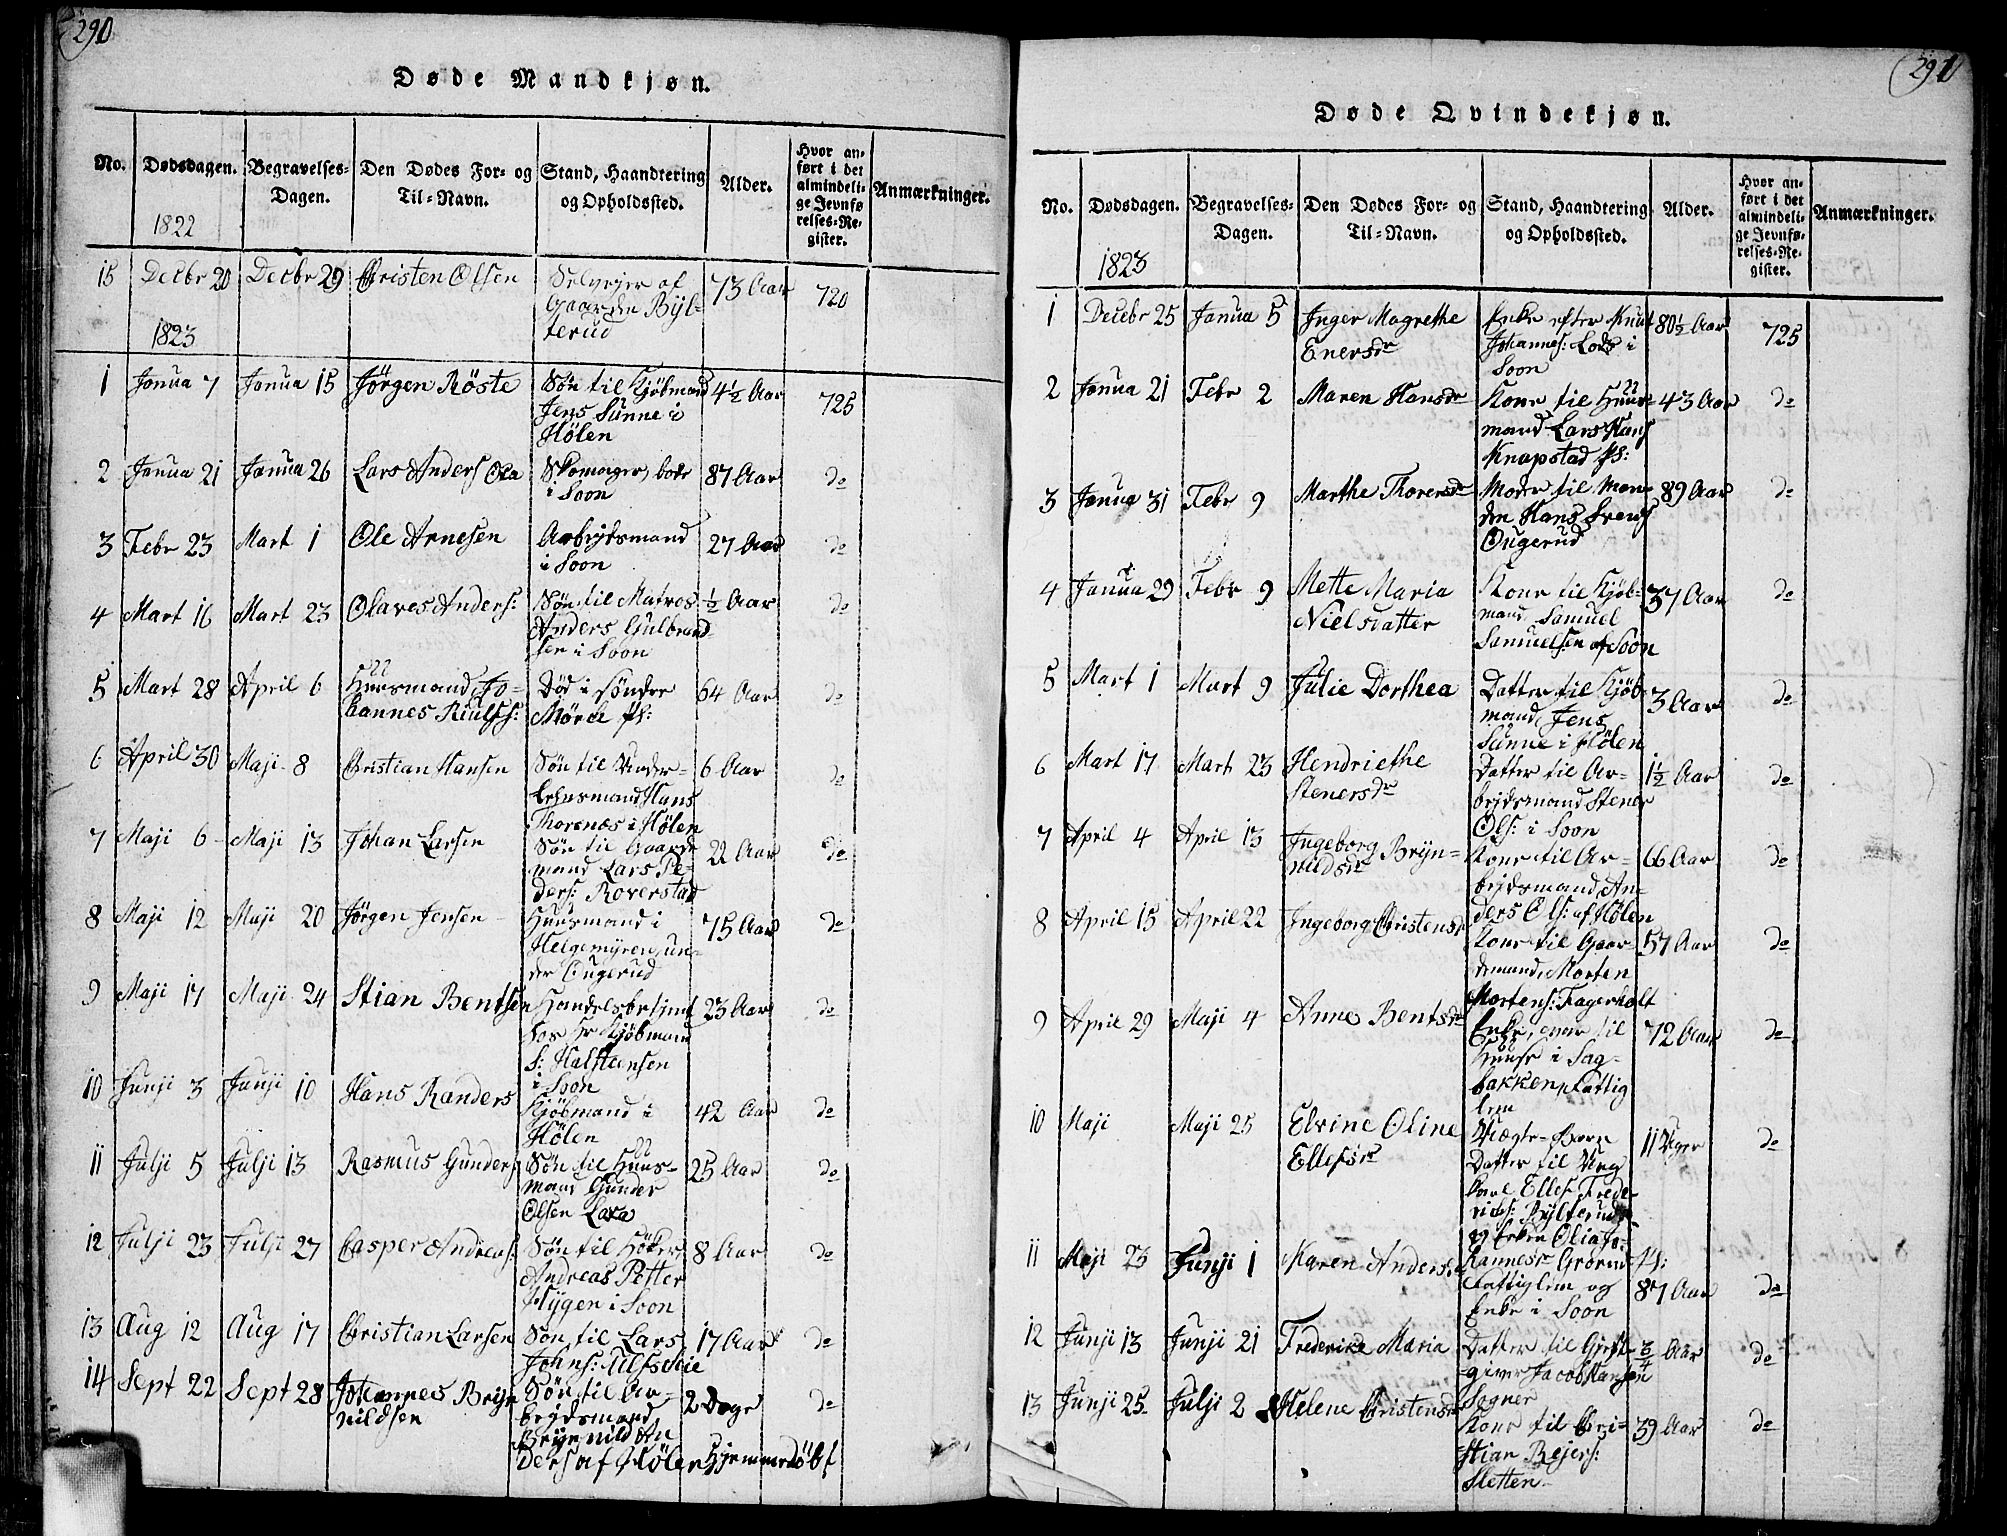 290
Døde Mandkjøn.
No. Dødsdagen. Begravelses-Dagen. Den Dødes For- og Til-Navn. Stand, Haandtering og Opholdssted. Alder. Hvor anført i det almindelige Jevnførelses-Register. Anmærkninger.
1822
15 Decbr 20 Decbr 29 Christen Olsen Selvejer af 73 Aar 720
Gaarden Byl-
terud
1823
1 Janua 7 Janua 15 Jörgen Röste Søn til Kjöbmand 4½ Aar 725
Jens Sunne i
Hölen
2 Janua 21 Janua 26 Lars Anders Skomager, bode 87 Aar do
i Soon
3 Febr 23 Mart 1 Ole Arnesen Arbejdsmand 27 Aar do
i Soon
4 Mart 16 Mart 23 Olaves Anders: Søn til Matros ½ Aar do
Anders Gulbrand
sen i Soon
5 Mart 28 April 6 Huusmand Jo- Død i søndre 64 Aar do
hannes Mörch Ps:
6 April 30 Maji 8 Christian Hansen Søn til Under- 6 Aar do
lehnsmand Hans
Thorenæs i Hölen
7 Maji 6 Maji 13 Johan Larsen Søn til Gaard 22 Aar do
mand Lars Pe-
ders: Roverstad
8 Maji 12 Maji 20 Jörgen Jensen Huusmand i 75 Aar do
Helgemyren, un-
der Ougerud
9 Maji 17 Maji 24 Stian Bentsen Handelsbetjent 23 Aar do
hos Hr Kjöbmand
S: Halstensen
i Soon
10 Junji 3 Junji 10 Hans Randers Kjöbmand i 42 Aar do
Hölen
11 Julji 5 Julji 13 Rasmus Gunders Søn til Huus- 25 Aar do
mand Gunder
Olsen
12 Julji 23 Julji 27 Casper Andreas: Søn til Höker 8 Aar do
Andreas Petter
Hygen i Soon
13 Aug 12 Aug 17 Christian Larsen Søn til Lars 17 Aar do
Johns:
14 Sept 22 Sept 28 Johannes Bryn Søn til Ar- 2 Dage do
nildsen bejdsmand
Brynnild An
ders af Hölen Hjemmedöbt
291
Døde Qvindekjøn.
No. Dødsdagen. Begravelses-Dagen. Den Dødes For- og Til-Navn. Stand, Haandtering og Opholdssted. Alder. Hvor anført i det almindelige Jevnførelses-Register. Anmærkninger.
1823
1 Decebr 25 Janua 5 Inger Magrethe Enke efter Knut 80½ Aar 725
Enersdr Johannes: Lods i
Soon
2 Janua 21 Febr 2 Maren Hansdr Kone til Huus- 43 Aar do
mand Lars Hans
Knapstad Ps:
3 Janua 31 Febr 9 Marthe Thoresdr Moder til Man- 89 Aar do
den Hans Svens
Ougerud
4 Janua 29 Febr 9 Mette Maria Kone til Kjöb- 37 Aar do
Nielsdatter mand Samuel
Samuelsen af Soon
5 Mart 1 Mart 9 Julie Dorthea Datter til Kjöb- 3 Aar do
mand Jens
Sunne i Hölen
6 Mart 17 Mart 23 Hendriethe Datter til Ar- 1½ Aar do
Stenersdr bejdsmand Stener
Ols: i Soon
7 April 4 April 13 Ingeborg Bryn- Kone til Ar- 66 Aar do
nildsdr bejdsmand An-
ders Ols: af Hölen
8 April 15 April 22 Ingeborg Christensdr Kone til Gaar- 57 Aar do
demand Morten
Mortens: Fagerholt
9 April 29 Maji 4 Anne Bentsdr Enke, var til 72 Aar do
Huuse i Sag-
bakken, Fattig
lem
10 Maji Maji 25 Elvine Oline Uægte-Barn 11 Uger do
Ellefsdr Datter til Ung
karl Ellef Frede-
richs: Bylterud
og Enken Olia Jo-
hannesdr Ps:
11 Maji 23 Junji 1 Karen Andersdr Fattiglem og 87 Aar do
Enke i Soon
12 Junji 13 Junji 21 Frederice Maria Datter til Gjest- ¾ Aar do
giver Jacob Hansen
Sogner
13 Junji 25 Julji 2 Helene Christensdr Kone til Chri- 39 Aar do
stian Rejers:
Sletten